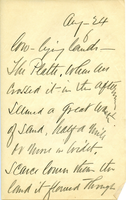 Aug-24
low-lying lands-
The Platte, when we
crossed it-in the after
noon
seemed a great way
of sand, half a mile
or more in width-
scarce lower than the
land it flowed through